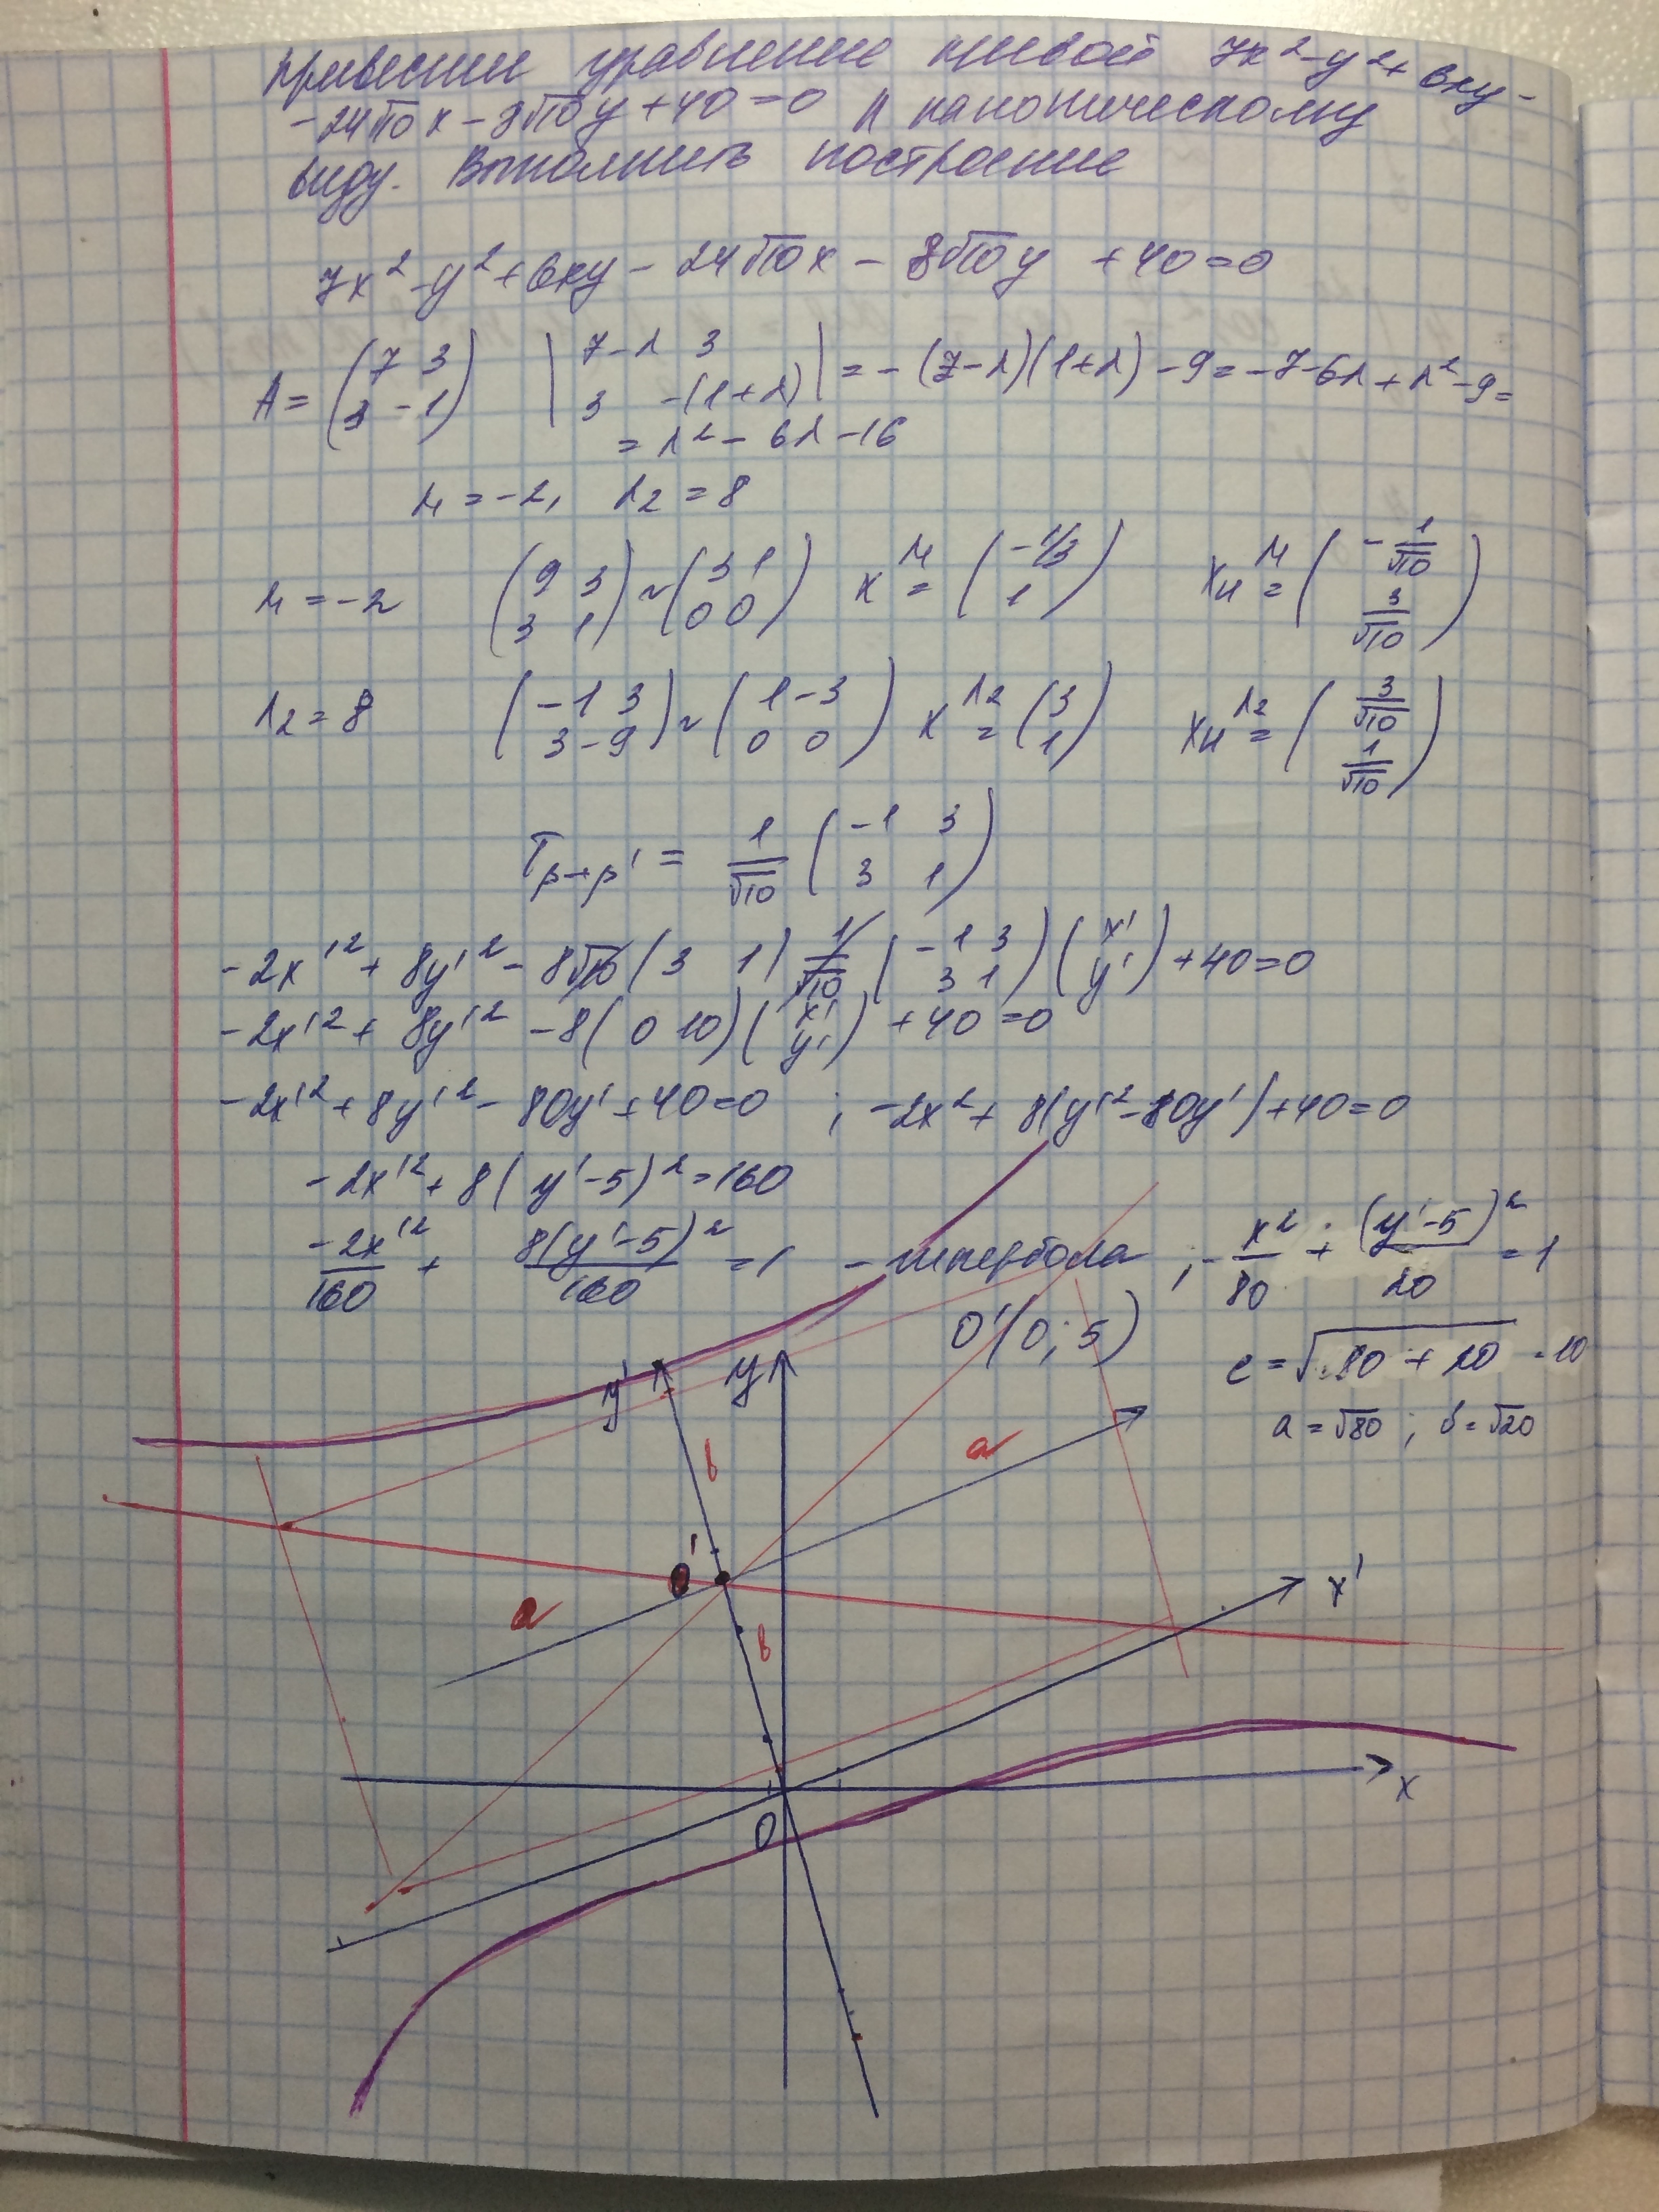 Привести уравнение кривой 7x² - y² + 6xy -
- 24√10 x - 8√10 y + 40 = 0 к каноническому
виду. Выполнить построение
7x² - y² + 6xy - 24√10 x - 8√10 y + 40 = 0
A = (7 3; 3 -1) |7-λ 3; 3 -(1+λ)| = -(7-λ)(1+λ) - 9 = -7-6λ+λ²-9 =
= λ² - 6λ - 16
λ₁ = -2, λ₂ = 8
λ₁ = -2 (9 3; 3 1) ~ (3 1; 0 0) x^λ₁ = (-1/3; 1) xн^λ₁ = (-1/√10; 3/√10)
λ₂ = 8 (-1 3; 3 -9) ~ (1 -3; 0 0) x^λ₂ = (3; 1) xн^λ₂ = (3/√10; 1/√10)
Tβ→β' = 1/√10 (-1 3; 3 1)
-2x'² + 8y'² - 8√10 (3 1) 1/√10 (-1 3; 3 1)(x'; y') + 40 = 0
-2x'² + 8y'² - 8(0 10)(x'; y') + 40 = 0
-2x'² + 8y'² - 80y' + 40 = 0 ; -2x² + 8(y'² - 80y') + 40 = 0
-2x'² + 8(y'-5)² = 160
-2x'²/160 + 8(y'-5)²/160 = 1 - гипербола ; - x²/80 + (y'-5)²/20 = 1
O'(0; 5)
c = √80 + 20 = 10
a = √80 ; b = √20
y' y
b a
O'
a b
x'
x
O